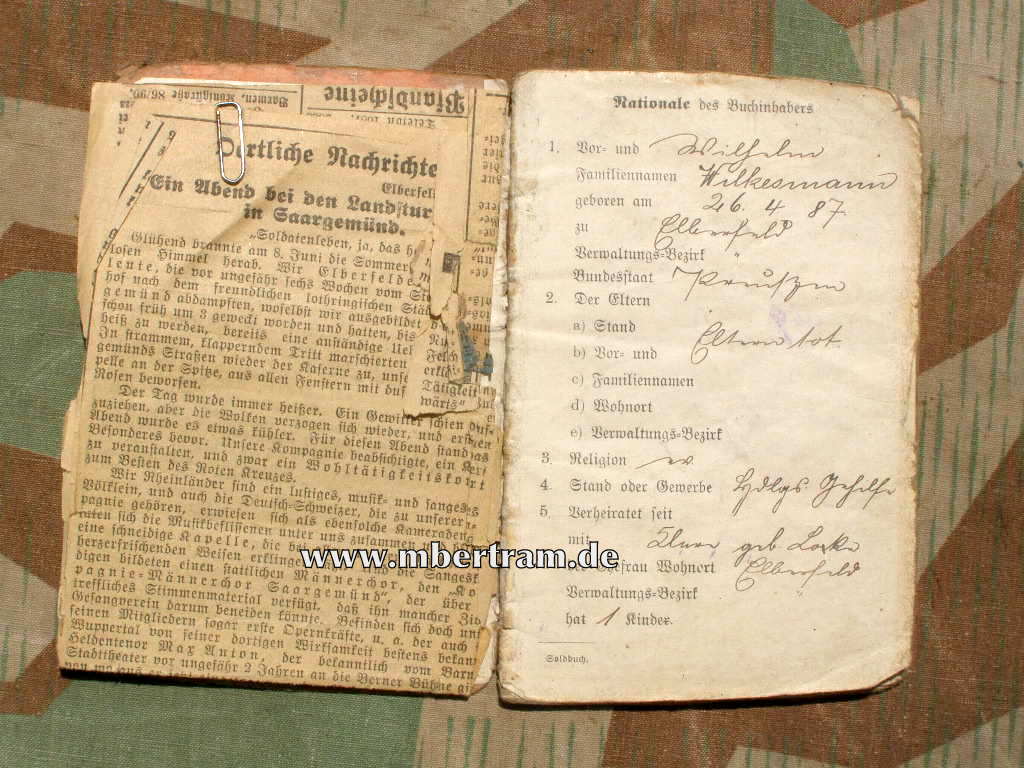 Barmen, Königstraße 86/90.
Pfandscheine
Telefon
Oertliche Nachrichte
Elberfel
Ein Abend bei den Landstur
in Saargemünd.
„Soldatenleben, ja, das h
Glühend brannte am 8. Juni die Sommer
losen Himmel herab. Wir Elberfelde
leute, die vor ungefähr sechs Wochen vom
hof nach dem freundlichen lothringischen Städ
gemünd abdampften, woselbst wir ausgebildet
schon früh um 3 geweckt worden und hatten, bis
heiß zu werden, bereits eine anständige
In strammem, klapperndem Tritt marschierten
gemünds Straßen wieder der Kaserne zu, unse
pelle an der Spitze, aus allen Fenstern mit duf
Rosen beworfen.
Der Tag wurde immer heißer. Ein Gewitter schien
zuziehen, aber die Wolken verzogen sich wieder, und erst
Abend wurde es etwas kühler. Für diesen Abend stand
Besonderes bevor. Unsere Kompagnie beabsichtigte, ein
zu veranstalten, und zwar ein Wohltätigkeitskonzert
zum Besten des Roten Kreuzes.
Wir Rheinländer sind ein lustiges, musik- und sanges
Völklein, und auch die Deutsch-Schweizer, die zu unserer
pagnie gehören, erwiesen sich als ebensolche Kameraden
eine schneidige Kapelle, die
herzerfrischenden Weisen
digen bildeten einen stattlichen Männerchor, den „Ko
pagnie-Männerchor Saargemünd", der über
treffliches Stimmenmaterial verfügt, daß ihn mancher Ziv
Gesangverein darum beneiden könnte. Befinden sich doch unt
seinen Mitgliedern sogar erste Opernkräfte, u. a. der auch
Wuppertal von seiner dortigen Wirksamkeit bestens bekan
Heldentenor Max Anton, der bekanntlich vom Barm
Stadttheater vor ungefähr 2 Jahren an die Berner Bühne
Nationale des Buchinhabers
1. Vor- und Wilhelm
Familiennamen Wilkesmann
geboren am 26. 4 87.
zu Elberfeld
Verwaltungs-Bezirk "
Bundesstaat Preußen
2. Der Eltern
a) Stand Eltern tot
b) Vor- und
c) Familiennamen
d) Wohnort
e) Verwaltungs-Bezirk
3. Religion ev
4. Stand oder Gewerbe Hdlgs Gehilfe
5. Verheiratet seit
mit geb
Ehefrau Wohnort Elberfeld
Verwaltungs-Bezirk
hat 1 Kinder.
Soldbuch.
www.mbertram.de